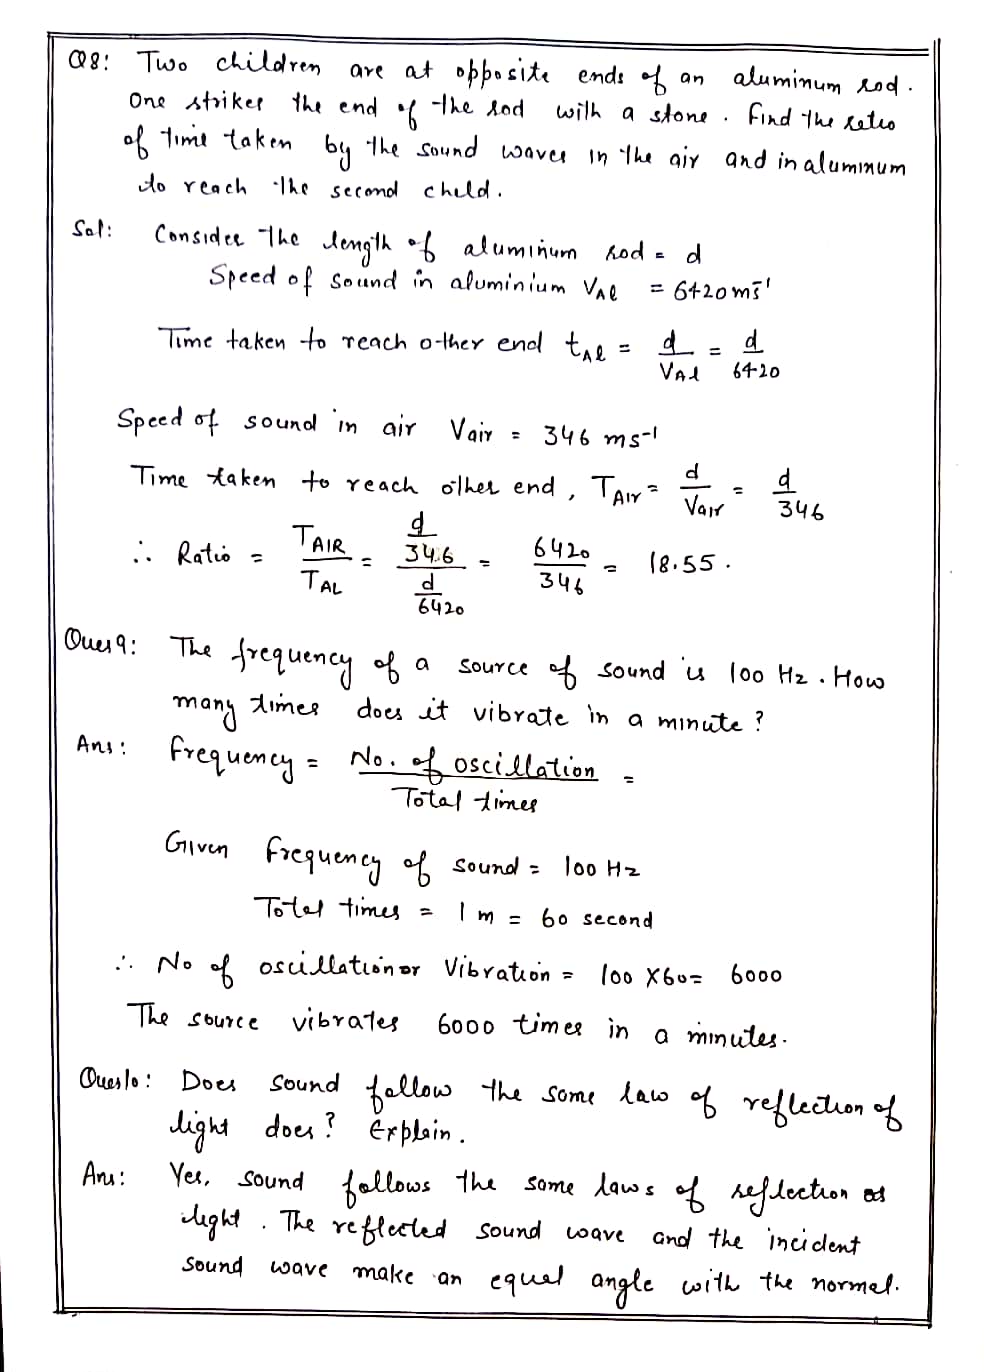 Q8: Two children are at opposite ends of an aluminum rod.
One strikes the end of the rod with a stone. Find the ratio
of time taken by the sound waves in the air and in aluminum
to reach the second child.
Sol: Consider the length of aluminum rod = d
Speed of sound in aluminium VAl = 6420 ms⁻¹
Time taken to reach other end tAl = d/VAl = d/6420
Speed of sound in air Vair = 346 ms⁻¹
Time taken to reach other end, TAir = d/Vair = d/346
∴ Ratio = TAIR/TAL = (d/346)/(d/6420) = 6420/346 = 18.55.
Ques9: The frequency of a source of sound is 100 Hz. How
many times does it vibrate in a minute?
Ans: Frequency = No. of oscillation/Total times =
Given Frequency of sound = 100 Hz
Total times = 1 m = 60 second
∴ No of oscillation or Vibration = 100 X 60 = 6000
The source vibrates 6000 times in a minutes.
Ques10: Does sound follow the same law of reflection of
light does? Explain.
Ans: Yes, sound follows the same laws of reflection as
light. The reflected sound wave and the incident
sound wave make an equal angle with the normal.